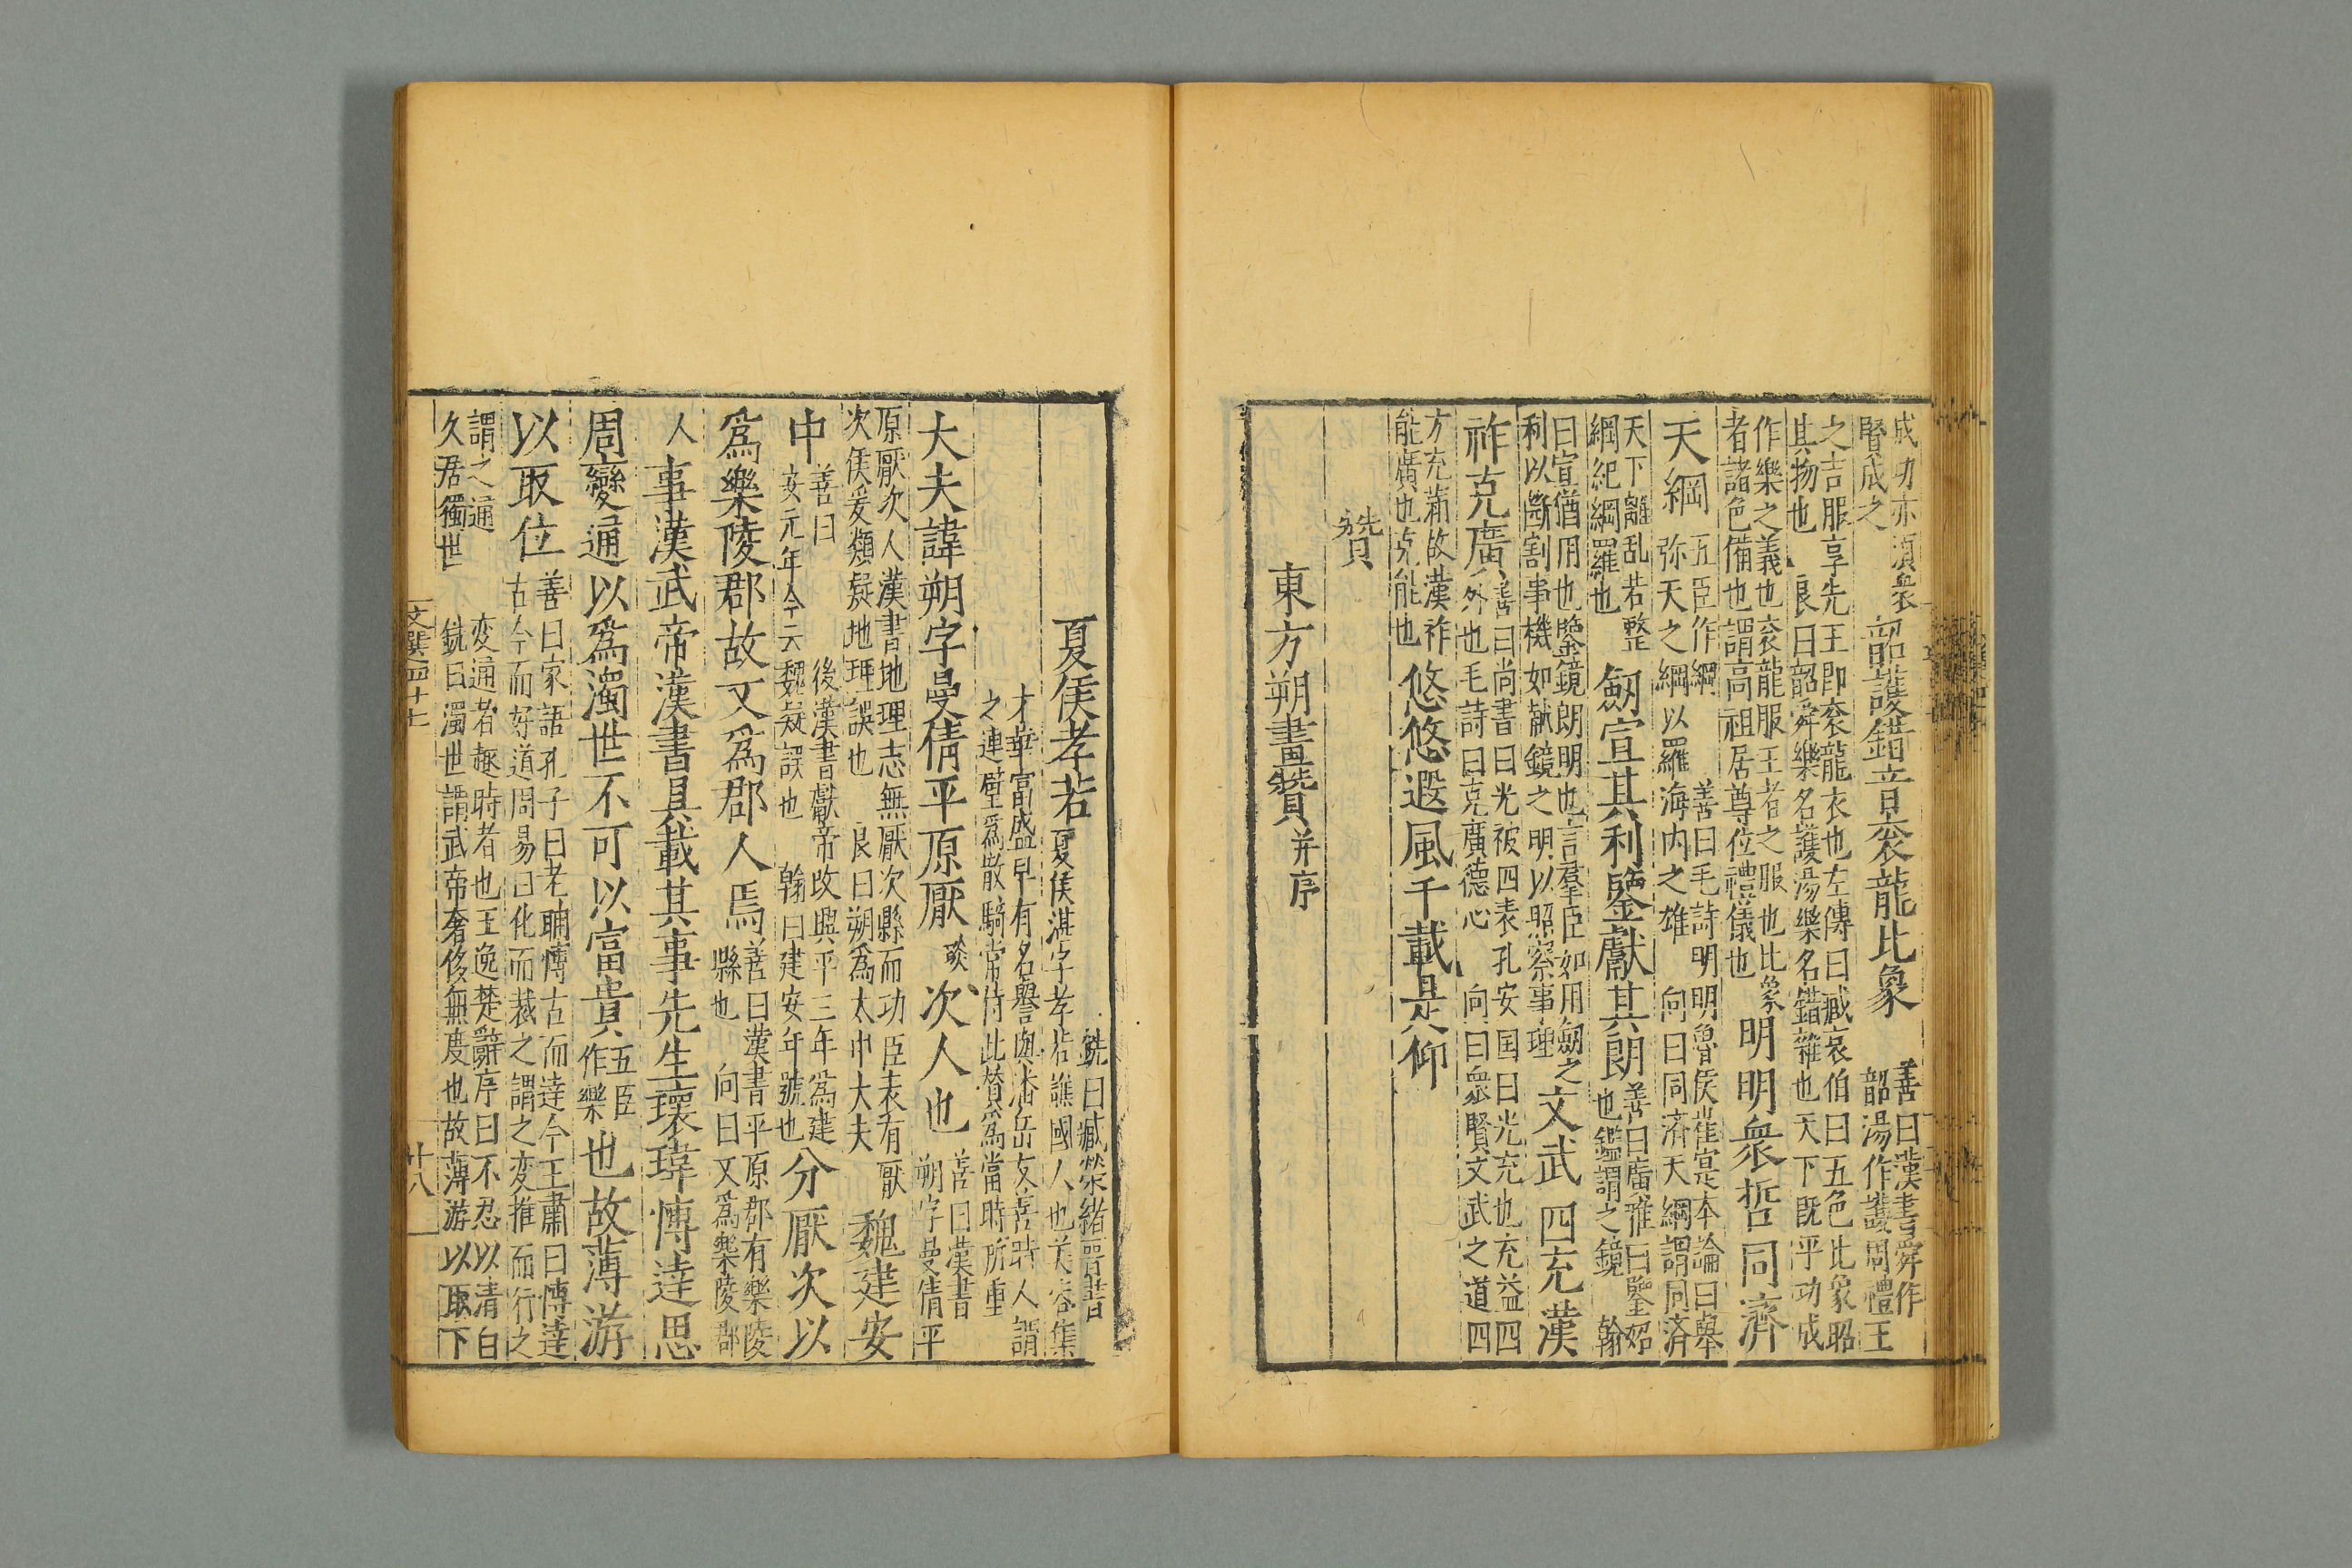 成功亦須衆賢成之 韶護錯音衮龍比象 善曰漢書舜作韶湯作護周禮王
之吉服享先王即衮龍衣也左傳曰臧哀伯曰五色比象昭其物也 良曰韶舜樂名護湯樂名錯雜也天下既平功成
作樂之義也衮龍服王者之服也比象者諸色備也謂高祖居尊位禮儀也 明明衆哲同濟
天綱 五臣作綱 弥天之綱以羅海内之雄 善曰毛詩明明魯侯崔寔本論曰舉 向曰同済天綱謂同済
天下離乱若整綱紀綱羅也 劔宣其利鑒獻其朗 善曰廣雅曰鑒炤也鑑謂之鏡 翰
曰宣猶用也鑒鏡朗明也言羣臣如用劔之利以断割事機如献鏡之明以照察事理 文武四充漢
祚克廣 善曰尚書曰光被四表孔安国曰光充也充益四外也毛詩曰克廣德心 向曰衆賢文武之道四
方充满故漢祚能廣也克能也 悠悠遐風千載是仰
贊
東方朔畫贊 并序
夏侯孝若 銑曰臧榮緒晉書夏侯湛字孝若譙國人也美容集
才華富盛早有名譽與潘岳友善時人謂之連璧爲散騎常侍此賛爲當時所重
大夫諱朔字曼倩平原厭 琰 次人也 善曰漢書朔字曼倩平
原厭次人漢書地理志無厭次縣而功臣表有厭次侯爰類疑地理誤也 良曰朔爲太中大夫 魏建安
中 善曰 後漢書獻帝攺興平三年爲建安元年今云魏疑誤也 翰曰建安年號也 分厭次以
爲樂陵郡故又爲郡人焉 善曰漢書平原郡有樂陵縣也 向曰又爲樂陵郡
人 事漢武帝漢書具載其事先生瓌瑋博達思
周變通以爲濁世不可以富貴 五臣作樂 也故薄游
以取位 善曰家語孔子曰老聃博古而達今王肅曰博達古今而好道周易曰化而裁之謂之変推而行之
謂之通 変通者趣時者也王逸楚辭序曰不忍以清白久居獨世 銑曰濁世謂武帝奢侈無度也故薄游以取下
文選四十七 廿八